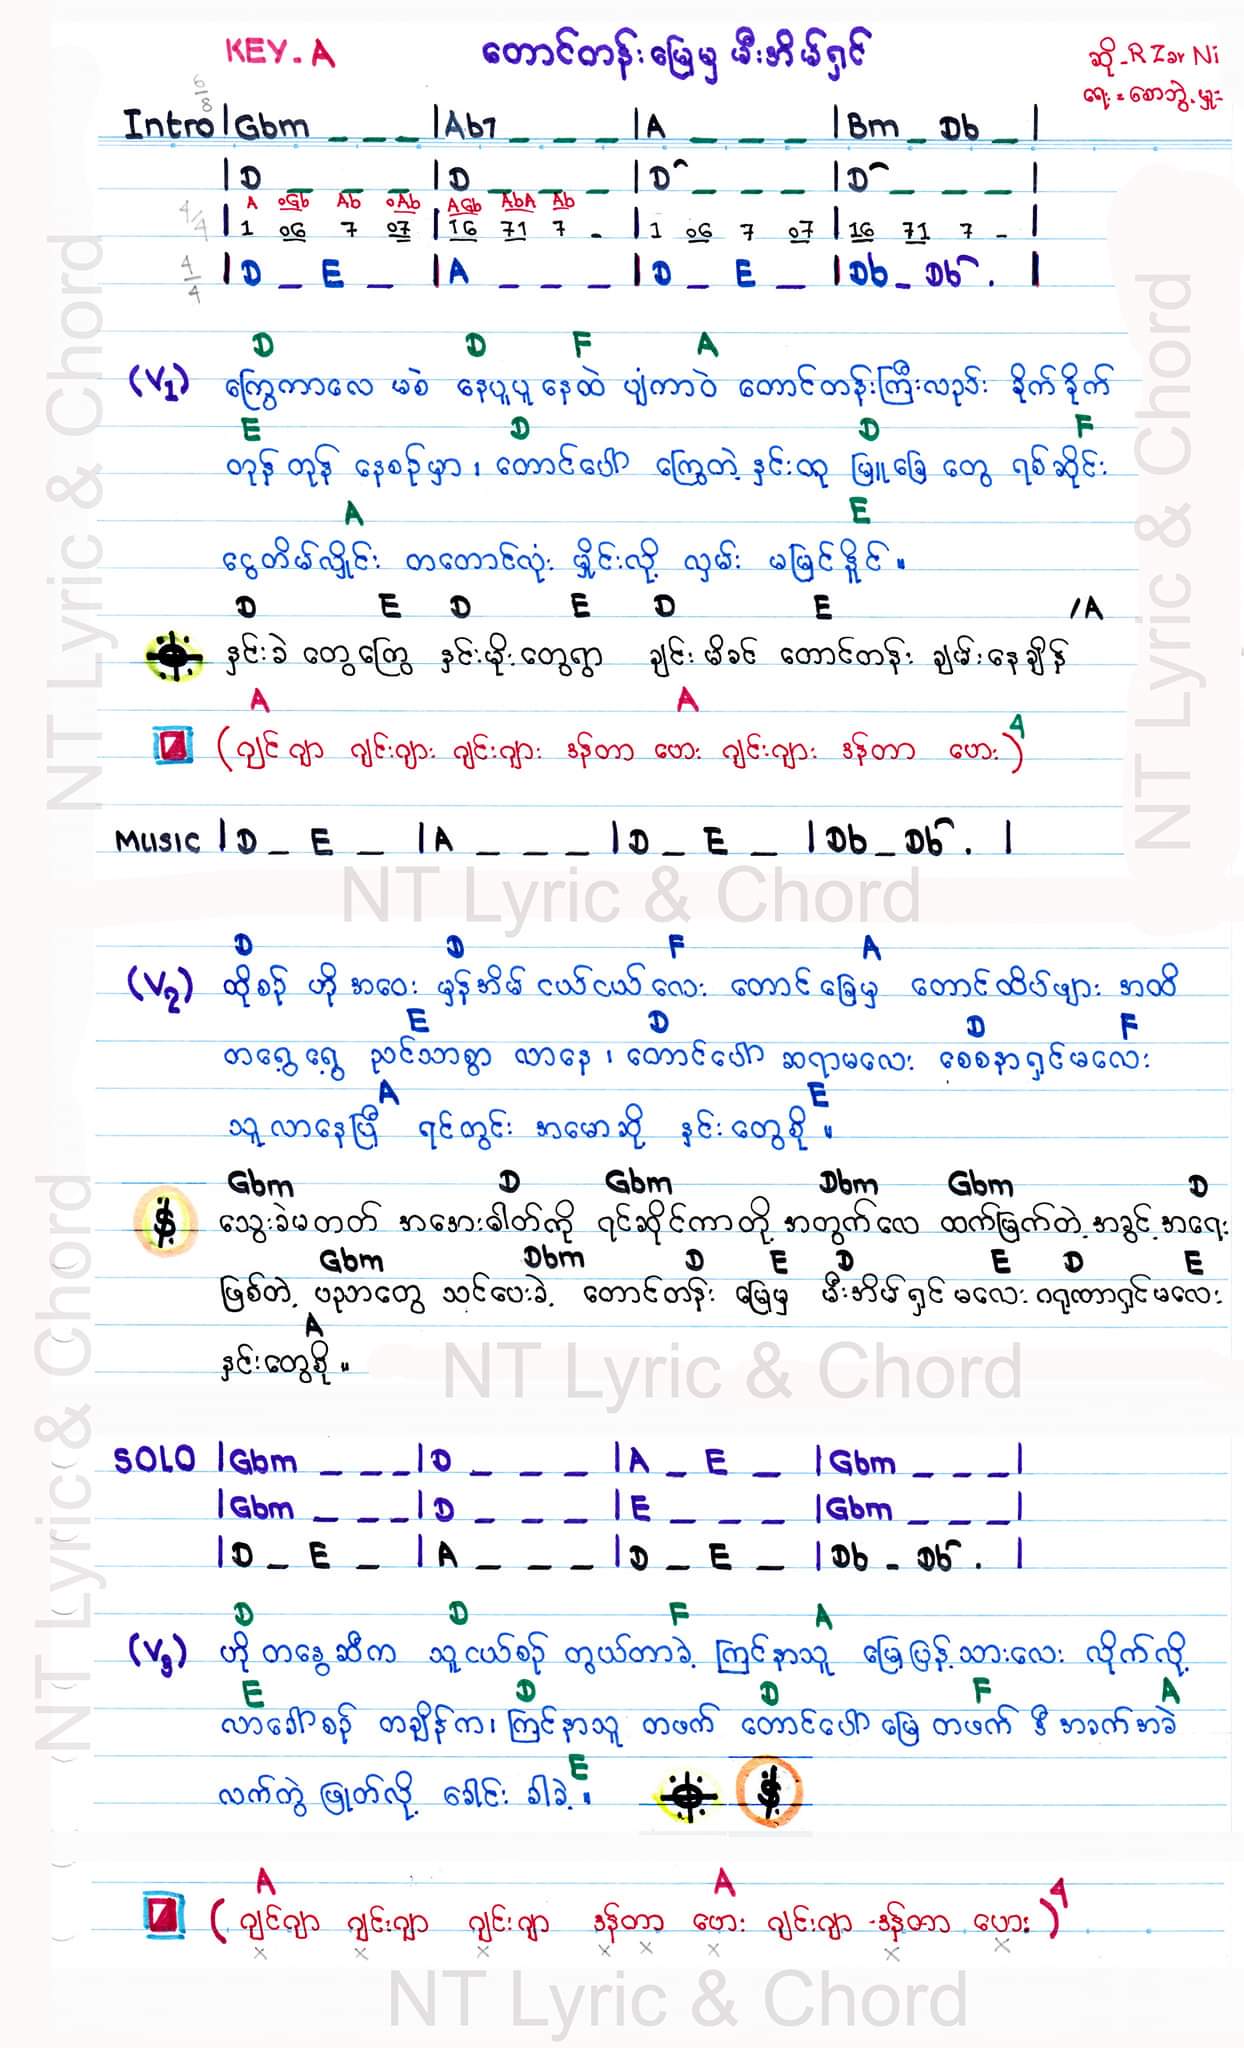 KEY. A
တောင်တန်းမြေမှ မီးအိမ်ရှင်
ဆို - R Zar Ni
ရေး = စောဘွဲ့မှူး
6/8
Intro |Gbm _ _ _ |Ab7 _ _ _ |A _ _ _ |Bm _ Db _ |
|D _ _ _ |D _ _ _ |D _ _ _ |D _ _ _ |
A oGb Ab oAb AGb AbA Ab
4/4 |1 06 7 07 |16 71 7 - |1 06 7 07 |16 71 7 - |
4/4 |D _ E _ |A _ _ _ |D _ E _ |Db _ Db . |
D D F A
(V1) ကြွေကာလေ မစဲ နေပူပူ နေထဲ ပျံကာဝဲ တောင်တန်းကြီးလည်း ခိုက်ခိုက်
E D D F
တုန် တုန် နေစဉ်မှာ ၊ တောင်ပေါ် ကြွေတဲ့ နှင်းထု မြူခြေ တွေ ရစ်ဆိုင်း
A E
ငွေတိမ်လှိုင်း တတောင်လုံး မှိုင်းလို့ လှမ်း မမြင်နိုင် ။
D E D E D E /A
နှင်းခဲ တွေကြွေ နှင်းမိုးတွေရွာ ချင်းမိခင် တောင်တန်း ချမ်းနေချိန်
A A
(ဂျင်ဂျာ ဂျင်းဂျား ဂျင်းဂျား ဒန်တာ ဟေး ဂျင်းဂျား ဒန်တာ ဟေး)4
MUSIC |D _ E _ |A _ _ _ |D _ E _ |Db _ Db . |
NT Lyric & Chord
D D F A
(V2) ထိုစဉ် ဟို အဝေး မှန်အိမ် ငယ်ငယ်လေး တောင်ခြေမှ တောင်ထိပ်ဖျား အထိ
E D D F
တရွေ့ရွေ့ ညင်သာစွာ လာနေ ၊ တောင်ပေါ် ဆရာမလေး စေစနာရှင်မလေး
A E
သူလာနေပြီ ရင်တွင်း အမောဆို နှင်းတွေစို ။
Gbm D Gbm Dbm Gbm D
သွေးခဲမတတ် အအေးဓါတ်ကို ရင်ဆိုင်ကာတို့ အတွက်လေ ထက်မြက်တဲ့ အခွင့်အရေး
Gbm Dbm D E D E D E
ဖြစ်တဲ့ ပညာတွေ သင်ပေးခဲ့ တောင်တန်း မြေမှ မီးအိမ်ရှင် မလေး ဂရုဏာရှင်မလေး
A
နှင်းတွေစို ။
NT Lyric & Chord
SOLO |Gbm _ _ _ |D _ _ _ |A _ E _ |Gbm _ _ _ |
|Gbm _ _ _ |D _ _ _ |E _ _ _ |Gbm _ _ _ |
|D _ E _ |A _ _ _ |D _ E _ |Db _ Db . |
D D F A
(V3) ဟို တနွေဆီက သူငယ်စဉ် တွယ်တာခဲ့ ကြင်နာသူ မြေပြန့်သားလေး လိုက်လို့
E D D F A
လာခေါ်စဉ် တချိန်က၊ ကြင်နာသူ တဖက် တောင်ပေါ်မြေ တဖက် ဒီ အခက်အခဲ
E
လက်တွဲ ဖြုတ်လို့ ခေါင်း ခါခဲ့ ။
A A
(ဂျင်ဂျာ ဂျင်းဂျာ ဂျင်းဂျာ ဒန်တာ ဟေး ဂျင်းဂျာ - ဒန်တာ ဟေး)4
NT Lyric & Chord
NT Lyric & Chord
NT Lyric & Chord
NT Lyric & Chord